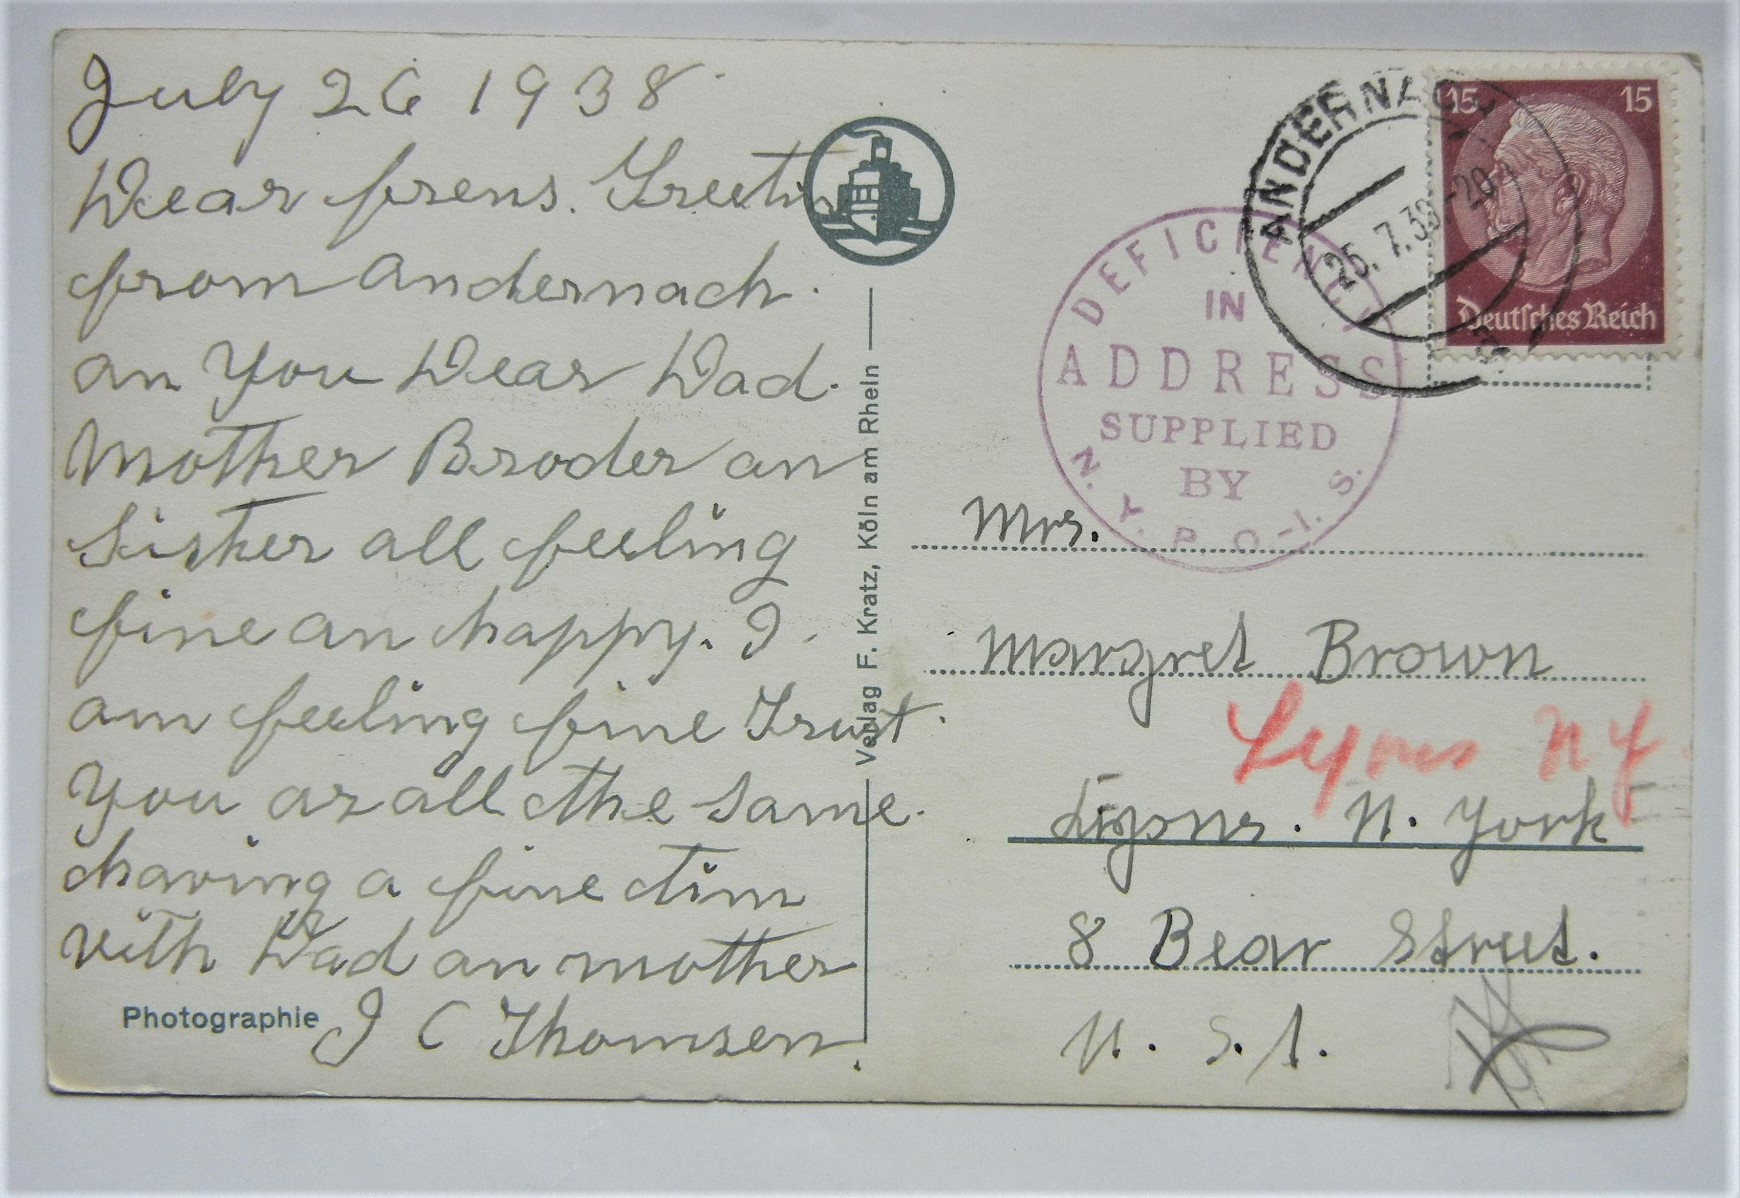 July 26 1938
Dear frens. Greetin
from Andernach.
an You Dear Dad.
Mother Broder an
Sister all feeling
fine an happy. I.
am feeling fine Trust.
You ar all the same.
having a fine tim
vith Dad an mother
J C Thomsen.
Photographie
Verlag F. Kratz, Köln am Rhein
DEFICIENCY
IN
ADDRESS
SUPPLIED
BY
N. Y. P. O.-I. S.
ANDERNACH
7.38-20
15 15
Deutsches Reich
Mrs.
Margret Brown
Lyons N Y.
Lyons. N. York
8 Bear Street.
U. S. A.